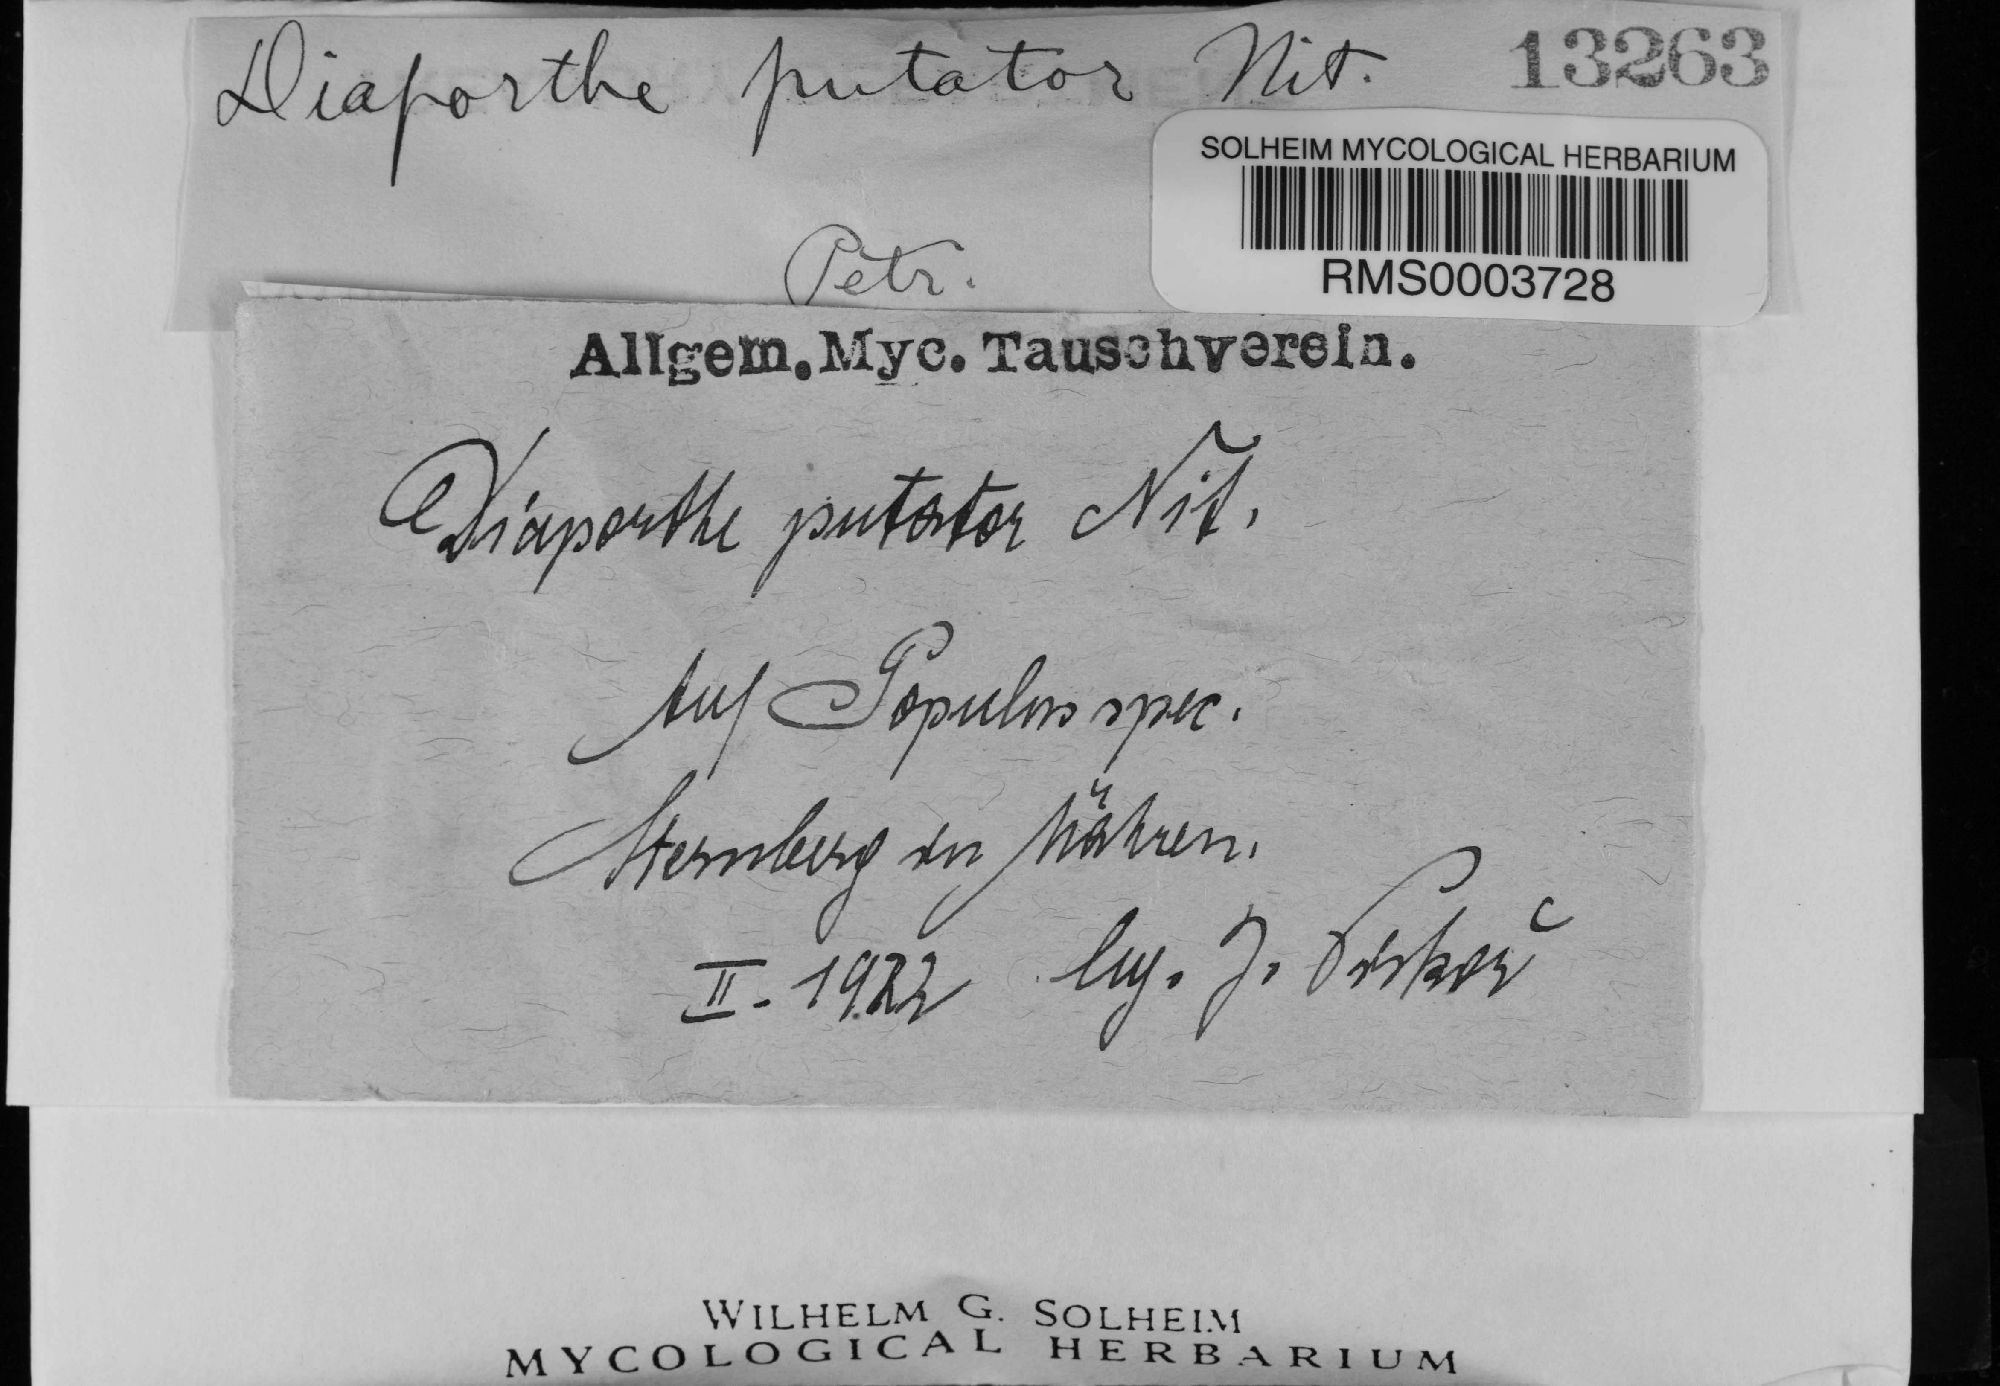 Diaporthe putator Nit. 13263
SOLHEIM MYCOLOGICAL HERBARIUM
RMS0003728
Petr.
Allgem. Myc. Tauschverein.
Diaporthe putator Nit.
Auf Populus spec.
Sternberg in Mähren.
II. 1922 leg. J. Piskoř
WILHELM G. SOLHEIM
MYCOLOGICAL HERBARIUM